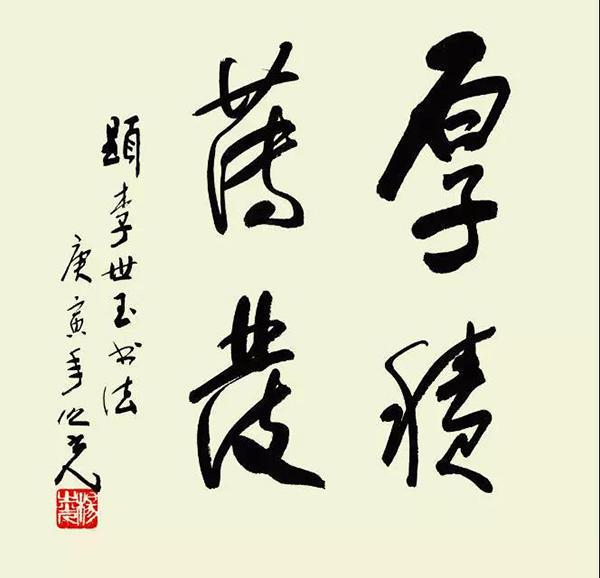 厚積
薄發
題李世玉书法
庚寅年